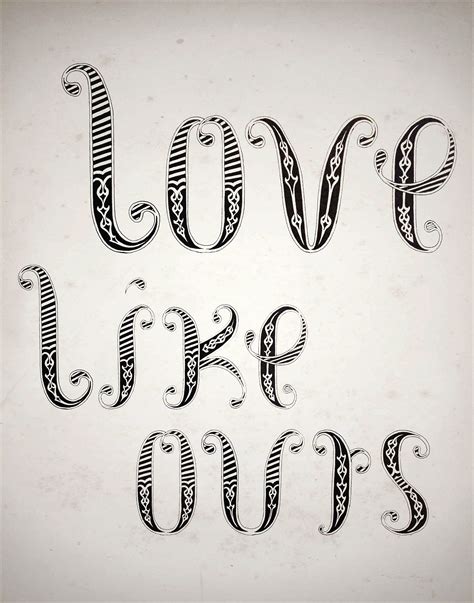 love
like
ours